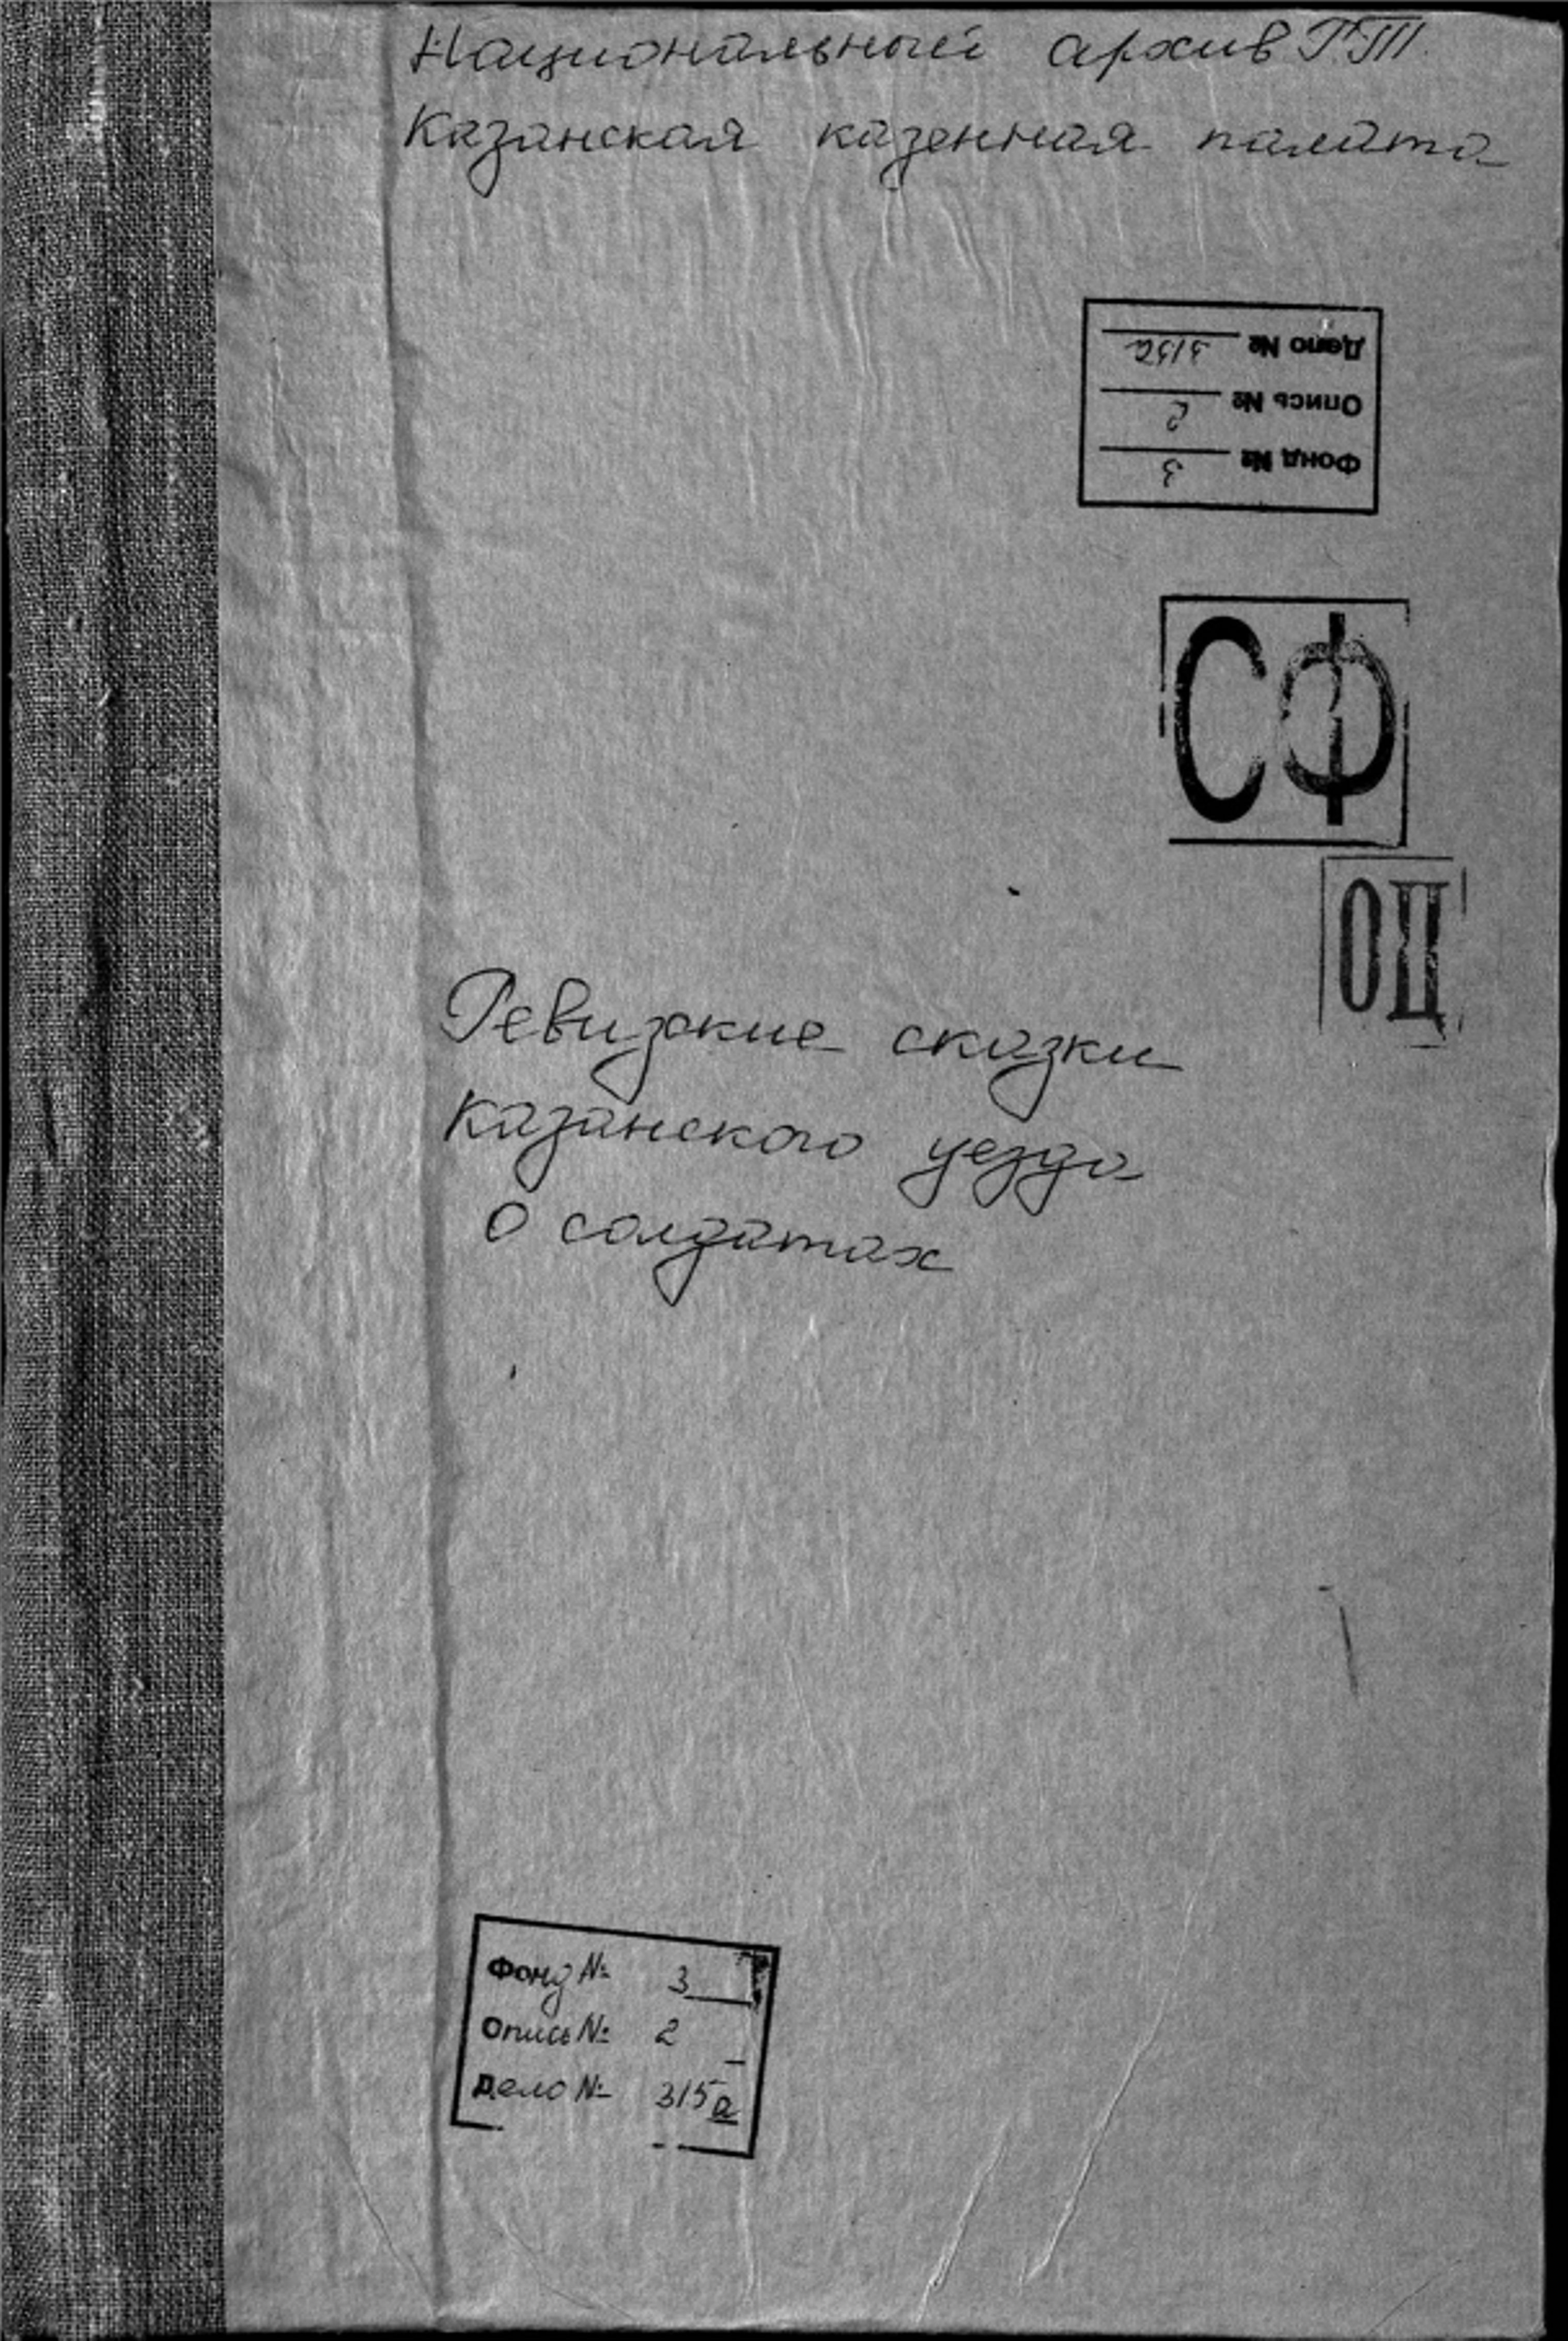 Национальный архив РТ
Казанская казенная палата
Дело № 315а
Опись № 2
Фонд № 3
СФ
ОЦ
Ревизкие сказки
Казанского уезда
о солдатах
Фонд № 3
Опись № 2
Дело № 315а